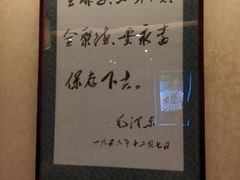 全聚德，要永远
保存下去。
毛泽东
一九五六年十二月七日